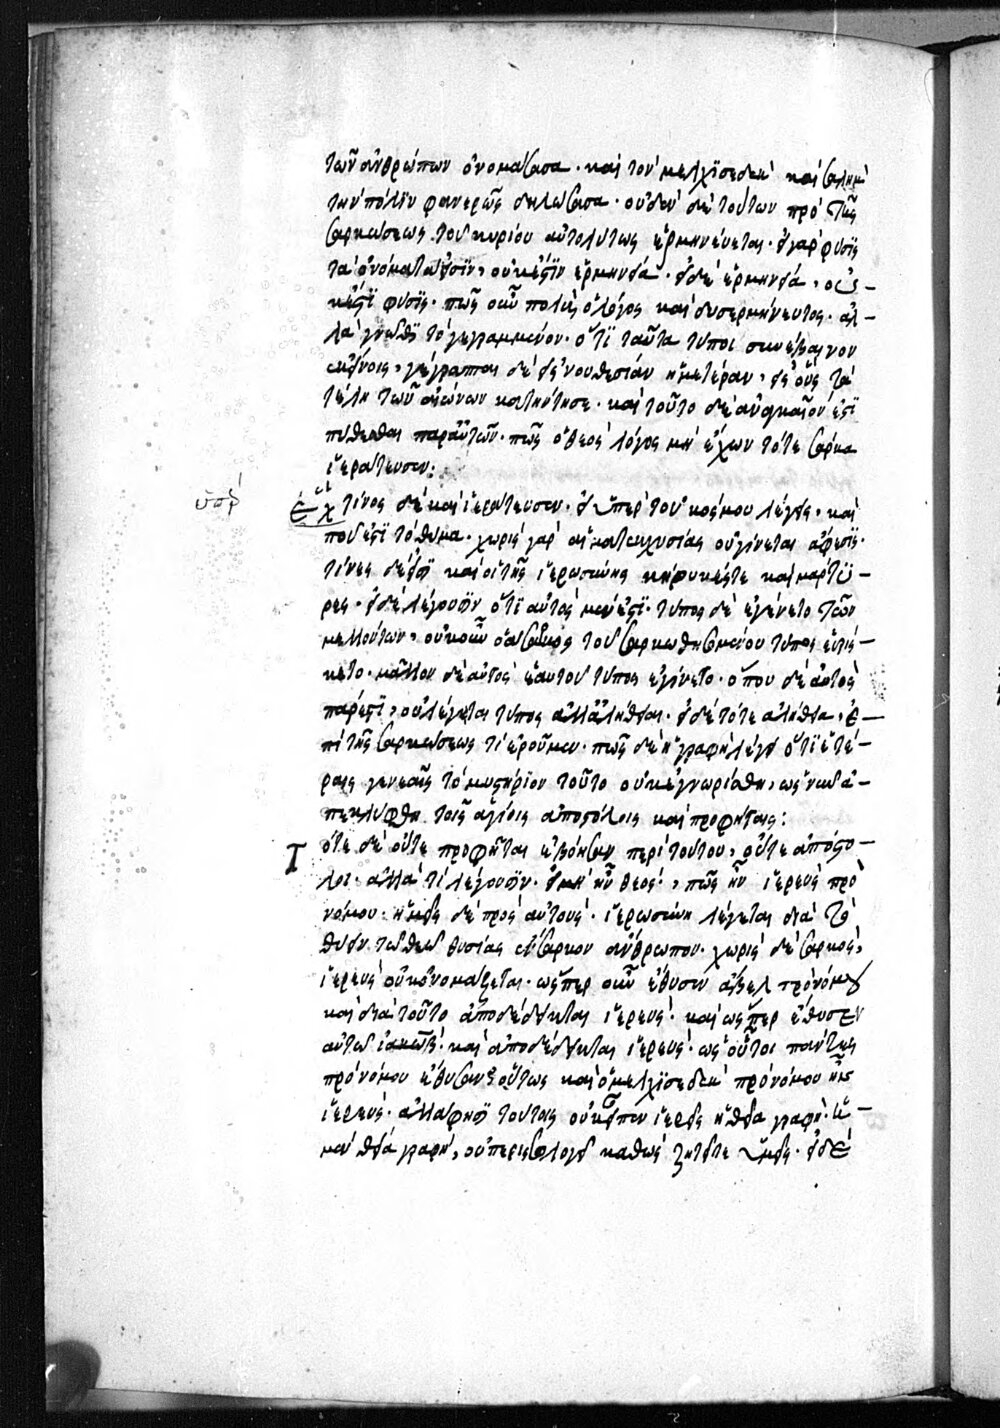 τῶν ἀνθρώπων ὀνομάσασα· καὶ τὸν μελχϊσεδὲκ καὶ σαλὴμ
τὴν πόλϊν φανερῶς δηλώσασα· οὐδὲν δὲ τούτων πρὸ τῆς
σαρκώσεως τοῦ κυρίου αὐτολύτως ἑρμηνεύεται· εἰ γὰρ φύσϊς
τὰ ὀνόματα εἰσϊν, οὐκέστϊν ἑρμηνεία· εἰ δὲ ἑρμηνεία, οὐ-
κέστϊ φύσϊς· πῶς οὖν πολὺς ὁ λόγος καὶ δυσερμήνευτος· ἀλ-
λὰ γνωθϊ τὸ γεγραμμένον· ὅτϊ ταῦτα τύποι συνέβαινον
ἐκείνοις, γέγραπται δὲ εἰς νουθεσίαν ἡμετέραν, εἰς οὓς τὰ
τέλη τῶν αἰώνων κατήντησε· καὶ τοῦτο δὲ ἀναγκαῖον ἐστϊ
πυθέσθαι παρ αὐτῶν· πῶς ὁ θεὸς λόγος μὴ ἔχων τότε σάρκα
ϊεράτευσεν:
τίνος δὲ καὶ ϊεράτευσεν· εἰ ὑπὲρ τοῦ κόσμου λέγεις, καὶ
ποῦ ἐστϊ τὸ θῦμα· χωρὶς γὰρ αἱματεκχυσίας οὐ γίνεται ἄφεσϊς·
τίνες δὲ εἰσϊ καὶ οἱ τῆς ϊερωσύνης κήρυκές τε καὶ μάρτυ-
ρες· εἰ δὲ λέγουσϊν ὅτϊ αὐτὸς μὲν ἐστϊ· τύπος δὲ ἐγένετο τῶν
μελλόντων, οὐκοῦν ὁ ἄσαρκος τοῦ σαρκωθησομένου τύπος εὑρίσ-
κετο· μᾶλλον δὲ αὐτὸς ἑαυτοῦ τύπος ἐγίνετο· ὅπου δὲ αὐτὸς
πάρεστϊ, οὐ λέγεται τύπος ἀλλ ἀλήθεια· εἰ δὲ τότε ἀλήθεια, ἐ-
πὶ τῆς σαρκώσεως τί ἐροῦμεν· πῶς δὲ ἡ γραφὴ λέγει ὅτϊ ἑτέ-
ραις γενεαῖς τὸ μυστήριον τοῦτο οὐκ ἐγνωρίσθη, ὡς νῦν ἀ-
πεκαλύφθη τοῖς ἁγίοις ἀποστόλοις καὶ προφήταις:
Τότε δὲ οὔτε προφῆται ἐβόησαν περὶ τούτου, οὔτε ἀπόστο-
λοι· ἀλλὰ τί λέγουσϊν· εἰ μὴ ἦν θεὸς, πῶς ἦν ϊερεὺς πρὸ
νόμου· ἡμεῖς δὲ πρὸς αὐτοὺς· ϊερωσύνη λέγεται διὰ τὸ
θύειν τῷ θεῷ θυσίας ἔνσαρκον ἄνθρωπον· χωρὶς δὲ σαρκὸς,
ϊερεὺς οὐκ ὀνομάζεται· ὥσπερ οὖν ἔθυσεν ἄβελ πρὸ νόμου
καὶ διὰ τοῦτο ἀποδέδεικται ϊερεὺς· καὶ ὥσπερ ἔθυσεν
αὐτῷ ϊακὼβ· καὶ ἀποδέδεικται ϊερεὺς· ὡς οὗτοι πάντες
πρὸ νόμου ἔθυσαν· οὕτως καὶ ὁ μελχϊσεδὲκ πρὸ νόμου ἦν
ϊερεὺς· ἀλλά φησϊ τούτοις οὐκ εἶπεν ϊερεῖς ἡ θεία γραφὴ· ἡ
μὲν θεία γραφὴ, οὐ περισσολογεῖ καθὼς ζητεῖτε ὑμεῖς· εἰ δὲ